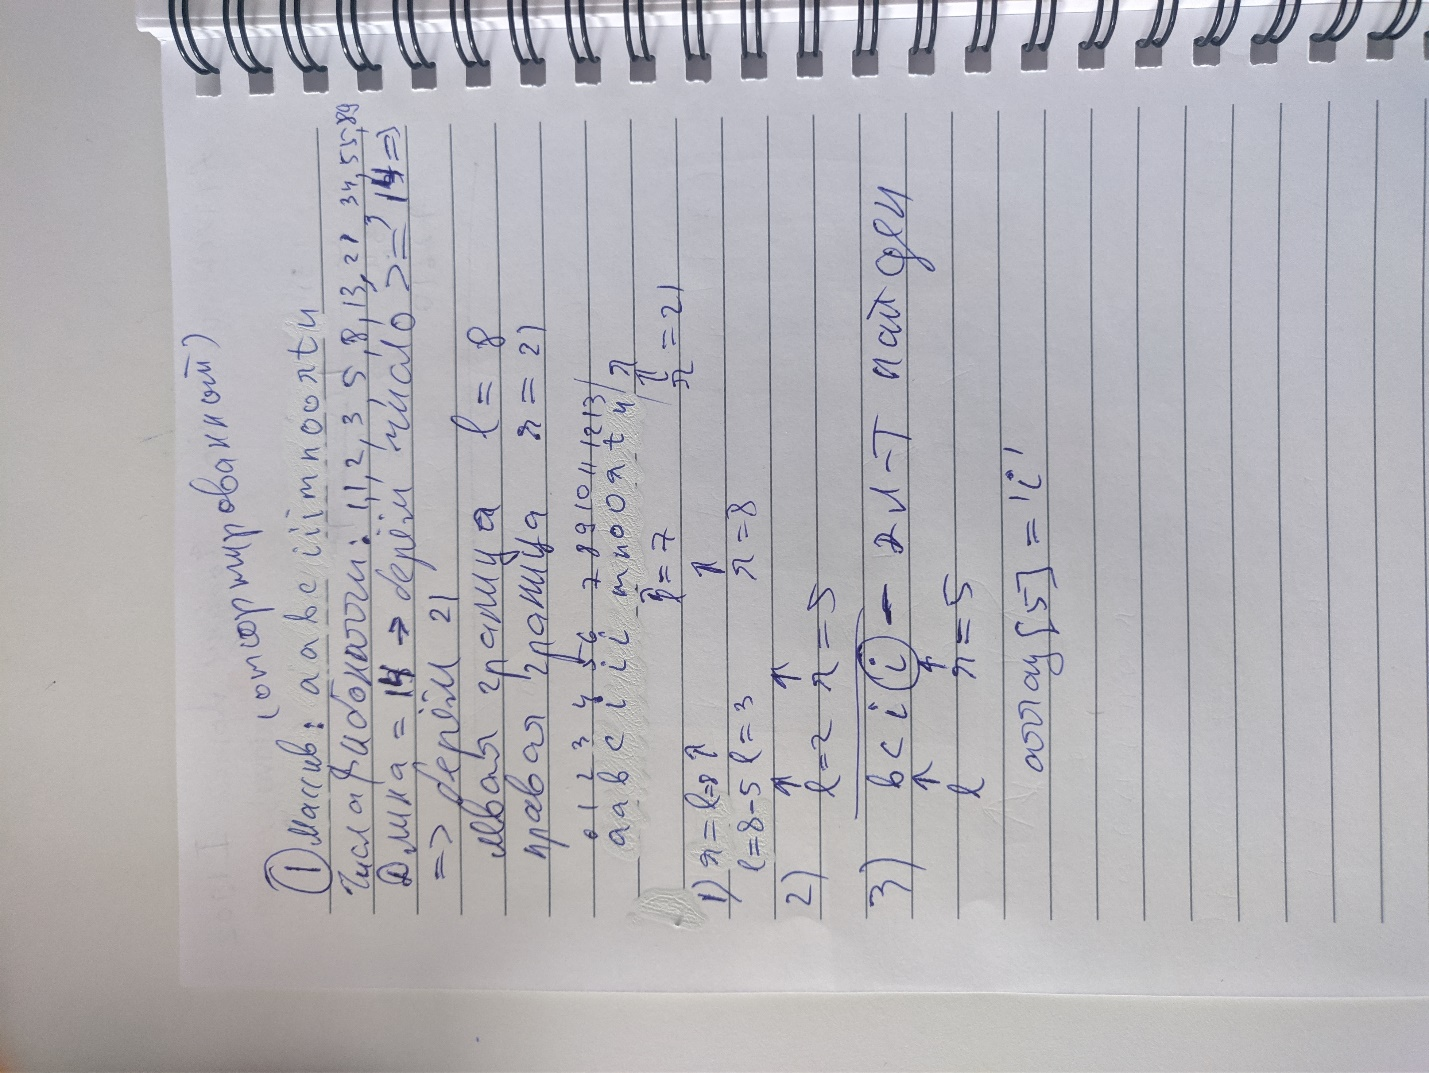 (отсортированный)
① Массив: aabciiimnoortu
Числа Фибоначчи: 1,1,2,3,5,8,13,21 34,55,89
Длина = 14 → берём число >= 14 =>
=> берём 21
левая граница l = 8
правая граница r = 21
0 1 2 3 4 5 6 7 8 9 10 11 12 13
a a b c i i i m n o o r t u
r = 7
r = 21
1) r = l=8 ↑ ↑
l=8-5 l=3 r=8
2) ↑ ↑
l=2 r=5
3) b c i i - элт найден
↑ ↑
l r=5
array[5] = 'i'